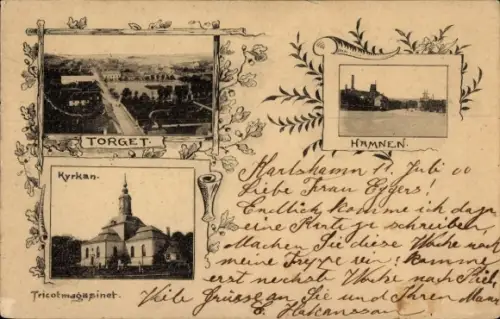 TORGET.
HAMNEN.
Kyrkan.
Tricotmagasinet.
Karlshamn 11. Juli 00
Liebe Frau Eggers!
Endlich komme ich dazu
eine Karte zu schreiben,
Machen Sie diese Woche noch
meine ein! komme
erst nächste Woche nach
Viele Grüsse an Sie und Ihren Mann
E. Hakansson